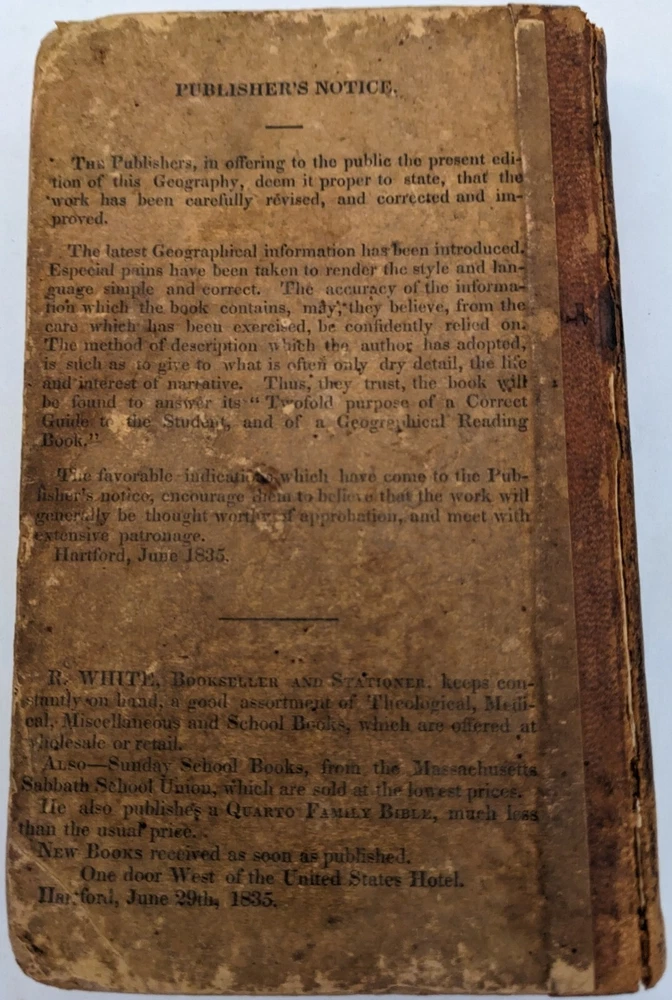 PUBLISHER'S NOTICE.
The Publishers, in offering to the public the present edi-
tion of this Geography, deem it proper to state, that the
work has been carefully revised, and corrected and im-
proved.
The latest Geographical information has been introduced.
Especial pains have been taken to render the style and lan-
guage simple and correct. The accuracy of the informa-
tion which the book contains, may, they believe, from the
care which has been exercised, be confidently relied on.
The method of description which the author has adopted,
is such as to give to what is often only dry detail, the life
and interest of narrative. Thus, they trust, the book will
be found to answer its "Twofold purpose of a Correct
Guide to the Student, and of a Geographical Reading
Book."
The favorable indications which have come to the Pub-
lisher's notice, encourage them to believe that the work will
generally be thought worthy of approbation, and meet with
extensive patronage.
Hartford, June 1835.
R. WHITE, Bookseller and Stationer, keeps con-
stantly on hand, a good assortment of Theological, Medi-
cal, Miscellaneous and School Books, which are offered at
wholesale or retail.
Also—Sunday School Books, from the Massachusetts
Sabbath School Union, which are sold at the lowest prices.
He also publishes a Quarto Family Bible, much less
than the usual price.
New Books received as soon as published.
One door West of the United States Hotel.
Hartford, June 29th, 1835.